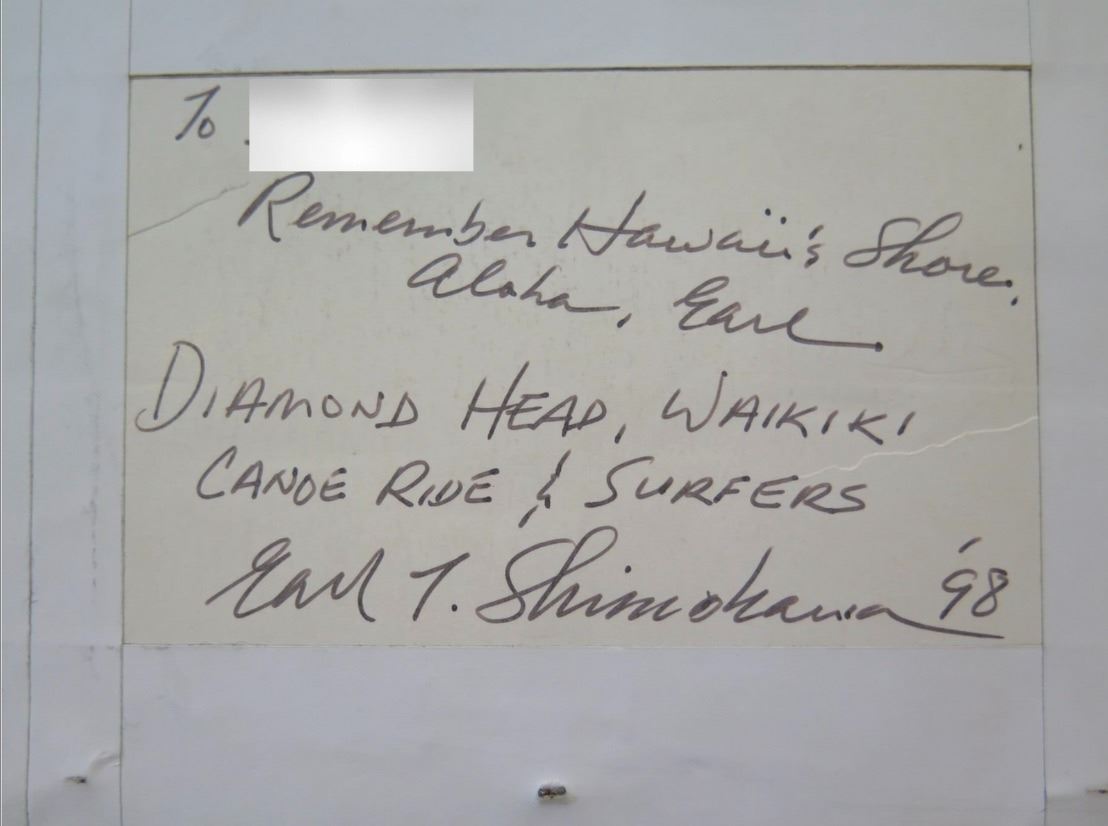 To
Remember Hawaii's Shore.
Aloha, Earl
DIAMOND HEAD, WAIKIKI
CANOE RIDE & SURFERS
Earl T. Shimokawa '98